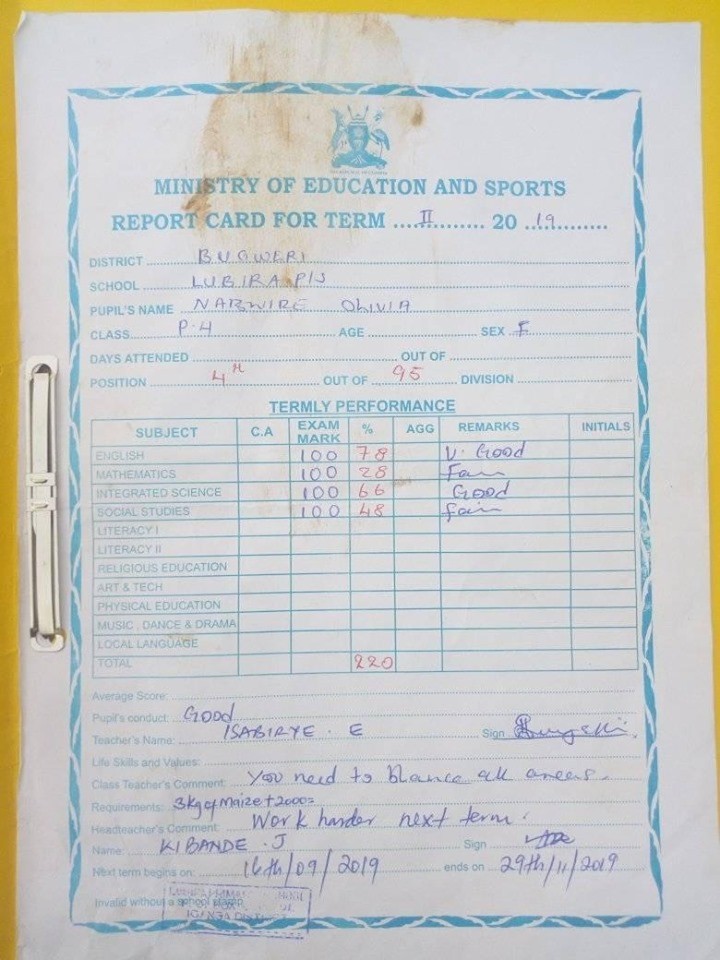 MINISTRY OF EDUCATION AND SPORTS
REPORT CARD FOR TERM .... II ........ 20 ..19..........
DISTRICT .......... BUGWERI
SCHOOL ........ LUBIRA P/S
PUPIL'S NAME NABWIRE OLIVIA
CLASS........ P.4 ........ AGE ........ SEX .. F
DAYS ATTENDED ........ OUT OF ........
POSITION ........ 4th ........ OUT OF ... 95 ...... DIVISION ........
TERMLY PERFORMANCE
SUBJECT C.A EXAM MARK % AGG REMARKS INITIALS
ENGLISH 100 78 V. Good
MATHEMATICS 100 28 Fair
INTEGRATED SCIENCE 100 66 Good
SOCIAL STUDIES 100 48 fair
LITERACY I
LITERACY II
RELIGIOUS EDUCATION
ART & TECH
PHYSICAL EDUCATION
MUSIC , DANCE & DRAMA
LOCAL LANGUAGE
TOTAL 220
Average Score:
Pupil's conduct: Good
Teacher's Name: ISABIRYE . E Sign
Life Skills and Values:
Class Teacher's Comment: You need to blance all areas.
Requirements: 3kg of maize + 2000=
Headteacher's Comment: Work harder next term.
Name: KIBANDE . J Sign
Next term begins on: 16th/09/2019 ends on 29th/11/2019
Invalid without a school stamp
IGANGA DISTRICT